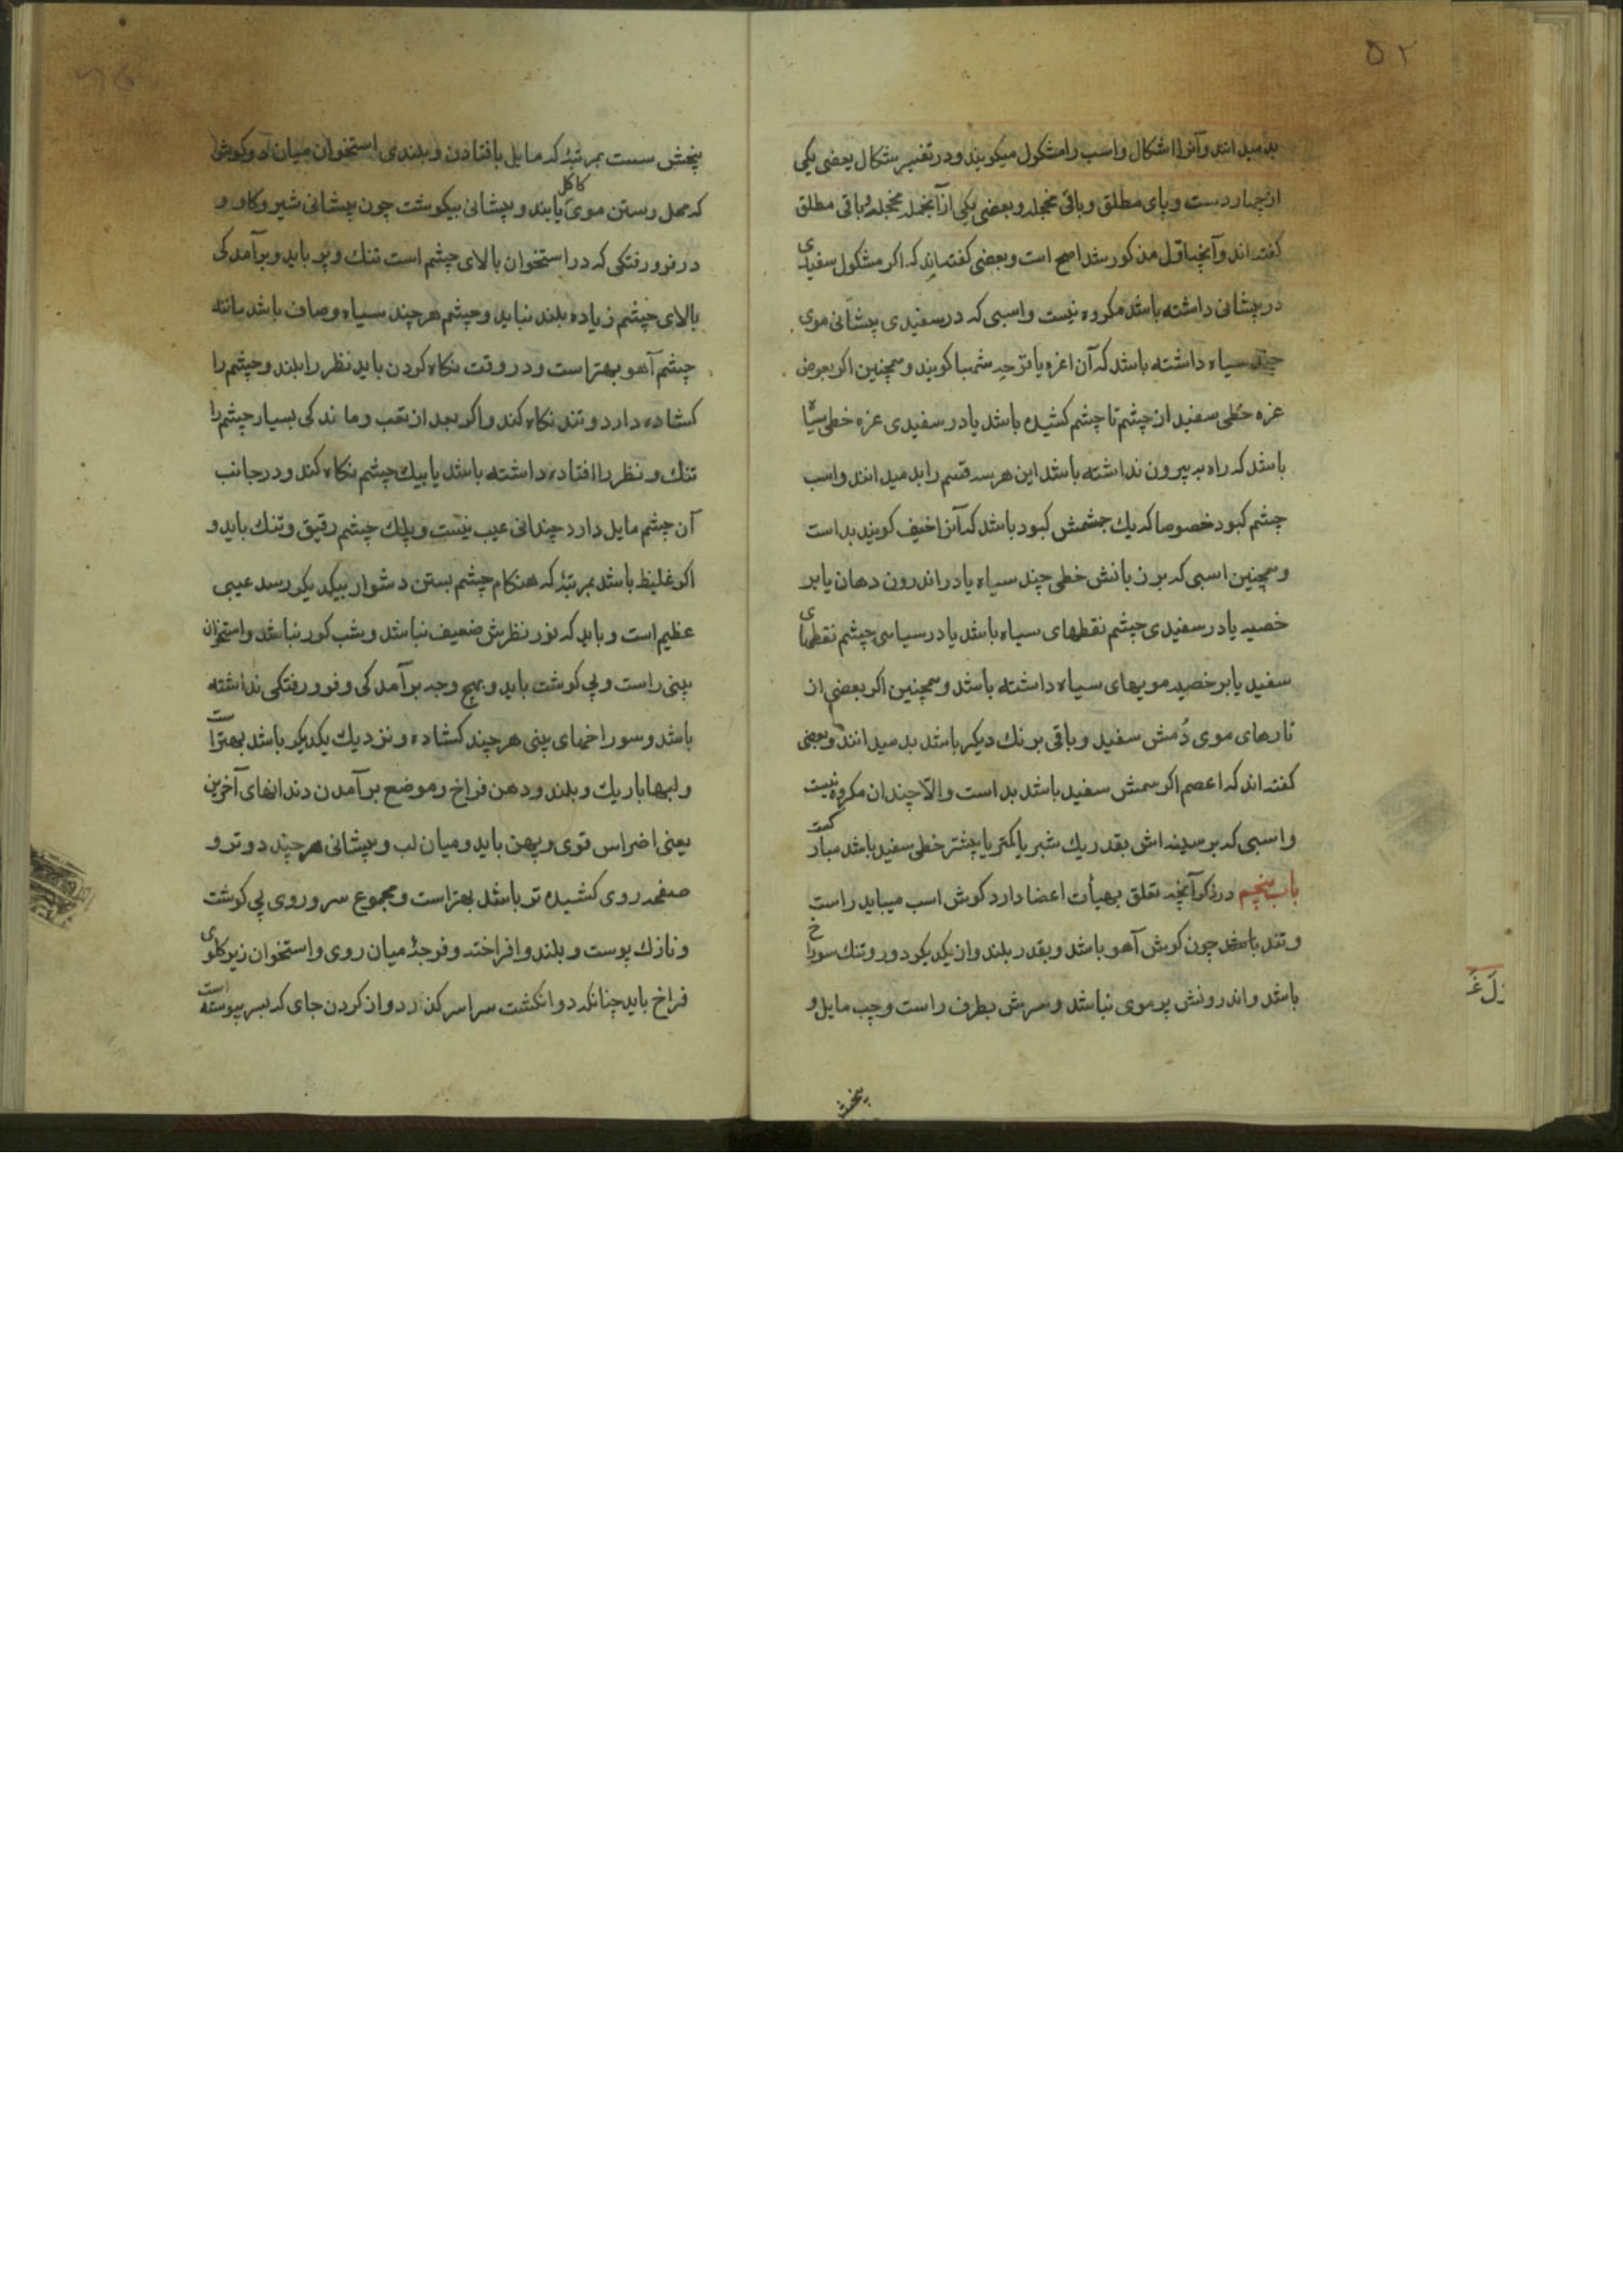 ۵۲
بد میدانند و آنرا اشکال و اسب را مشکول میکویند و در تفسیر شکال بعضی یکی
از چهار دست و پای مطلق و باقی محجله و بعضی یکی از آنجمله محجله و باقی مطلق
کفته اند و آنچه اول مذکور شد اصح است و بعضی کفته اند که اکر مشکول سفیدی
در پیشانی داشته باشد مکروه نیست و اسبی که در سفیدی پیشانی موی
چند سیاه داشته باشد که آن اغره یا قرحه شهبا کویند و همچنین اکر بعوض
غره خطی سفید از چشم تا چشم کشیده باشد یا در سفیدی غره خطی سیاه
باشد که راه به بیرون نداشته باشد این هر سه قسم را بد میدانند و اسب
چشم کبود خصوصا که یك چشمش کبود باشد که آنرا اخیف کویند بد است
و همچنین اسبی که بر زبانش خطی چند سیاه یا در اندرون دهان یا بر
خصیه یا در سفیدی چشم نقطهای سیاه باشد یا در سیاهی چشم نقطهای
سفید یا بر خصیه مویهای سیاه داشته باشد و همچنین اکر بعضی از
تارهای موی دُمش سفید و باقی برنك دیکر باشد بد میدانند و بعضی
کفته اند که اعصم اکر سمش سفید باشد بد است و الّا چندان مکروه نیست
و اسبی که بر سینه اش بقدر یك شبر یا کمتر یا بیشتر خطی سفید باشد مبارکست
باب پنجم در ذکر آنچه تعلق بهیأت اعضا دارد کوش اسب میباید راست
و تند باشد چون کوش آهو باشد و بقدر بلند و از یکدیکر دور و تنك سوراخ
باشد و اندرونش پر موی نباشد و سرش بطرف راست و چپ مایل و
بیخش
بیخش سست بمرتبهٔ که مایل بافتادن و بلندی استخوان میان دو کوش
که محل رستن موی کاکل یابند و پیشانی بیکوشت چون پیشانی شیر و کاو و
در فرورفتکی که در استخوان بالای چشم است تنك و پر باید و برآمدکی
بالای چشم زیاده بلند نباید و چشم هر چند سیاه و صاف باشد مانند
چشم آهو بهتر است و در وقت نکاه کردن باید نظر را بلند و چشم را
کشاده دارد و تند نکاه کند و اکر بعد از تعب و ماندکی بسیار چشم را
تنك و نظر را افتاده داشته باشد یا بیك چشم نکاه کند و در جانب
آن چشم مایل دارد چندانی عیب نیست و پلك چشم رقیق و تنك باید و
اکر غلیظ باشد بمرتبهٔ که هنکام چشم بستن دشوار بیکدیکر رسد عیبی
عظیم است و باید که نور نظرش ضعیف نباشد و شب کور نباشد و استخوان
بینی راست و بی کوشت باید و بهیچ وجه برآمدکی و فرورفتکی نداشته
باشد و سوراخهای بینی هر چند کشاده و نزدیك یکدیکر باشد بهتر است
و لبها باریك و بلند و دهن فراخ و موضع برآمدن دندانهای آخرین
یعنی اضراس قوی و پهن باید و میان لب و پیشانی هر چند دورتر و
صفحه روی کشیده تر باشد بهتر است و مجموع سر و روی بی کوشت
و نازك پوست و بلند و افراخته و فرجهٔ میان روی و استخوان زیر کلوی
فراخ باید چنانکه دو انکشت سراسر کذرد و از کردن جای که بسر پیوسته است